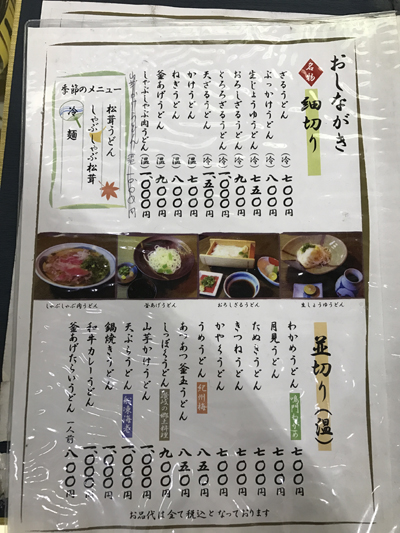 おしながき
名物
細切り
ざるうどん（冷）七〇〇円
ぶっかけうどん（冷）八〇〇円
生じょうゆうどん（冷）七五〇円
おろしざるうどん（冷）九〇〇円
とろろざるうどん（冷）一、〇〇〇円
天ざるうどん（冷）一、五〇〇円
かけうどん（温）七〇〇円
ねぎうどん（温）八〇〇円
釜あげうどん（温）九〇〇円
しゃぶしゃぶ肉うどん（温）一、〇〇〇円
季節のメニュー
松茸うどん
しゃぶしゃぶ松茸
冷麺
しゃぶしゃぶ肉うどん
釜あげうどん
おろしざるうどん
生じょうゆうどん
並切り（温）
わかめうどん
七〇〇円
月見うどん 七〇〇円
たぬきうどん 七〇〇円
きつねうどん 七〇〇円
かやくうどん 七〇〇円
うめうどん 紀州梅 八五〇円
あつあつ釜玉うどん 八五〇円
しっぽくうどん 讃岐の郷土料理 九〇〇円
山芋かけうどん
天ぷらうどん
鍋焼きうどん
和牛カレーうどん
釜あげたらいうどん 一人前 八〇〇円
お品代は全て税込となっております